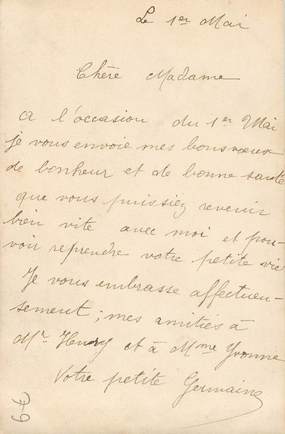 Le 1er Mai
Chère Madame
A l'occasion du 1er Mai
je vous envoie mes bons vœux
de bonheur et de bonne santé
que vous puissiez revenir
bien vite avec moi et pou-
voir reprendre votre petite vie
Je vous embrasse affectueu-
sement; mes amitiés à
Mr Henry et à Mme Yvonne
Votre petite Germaine
6€